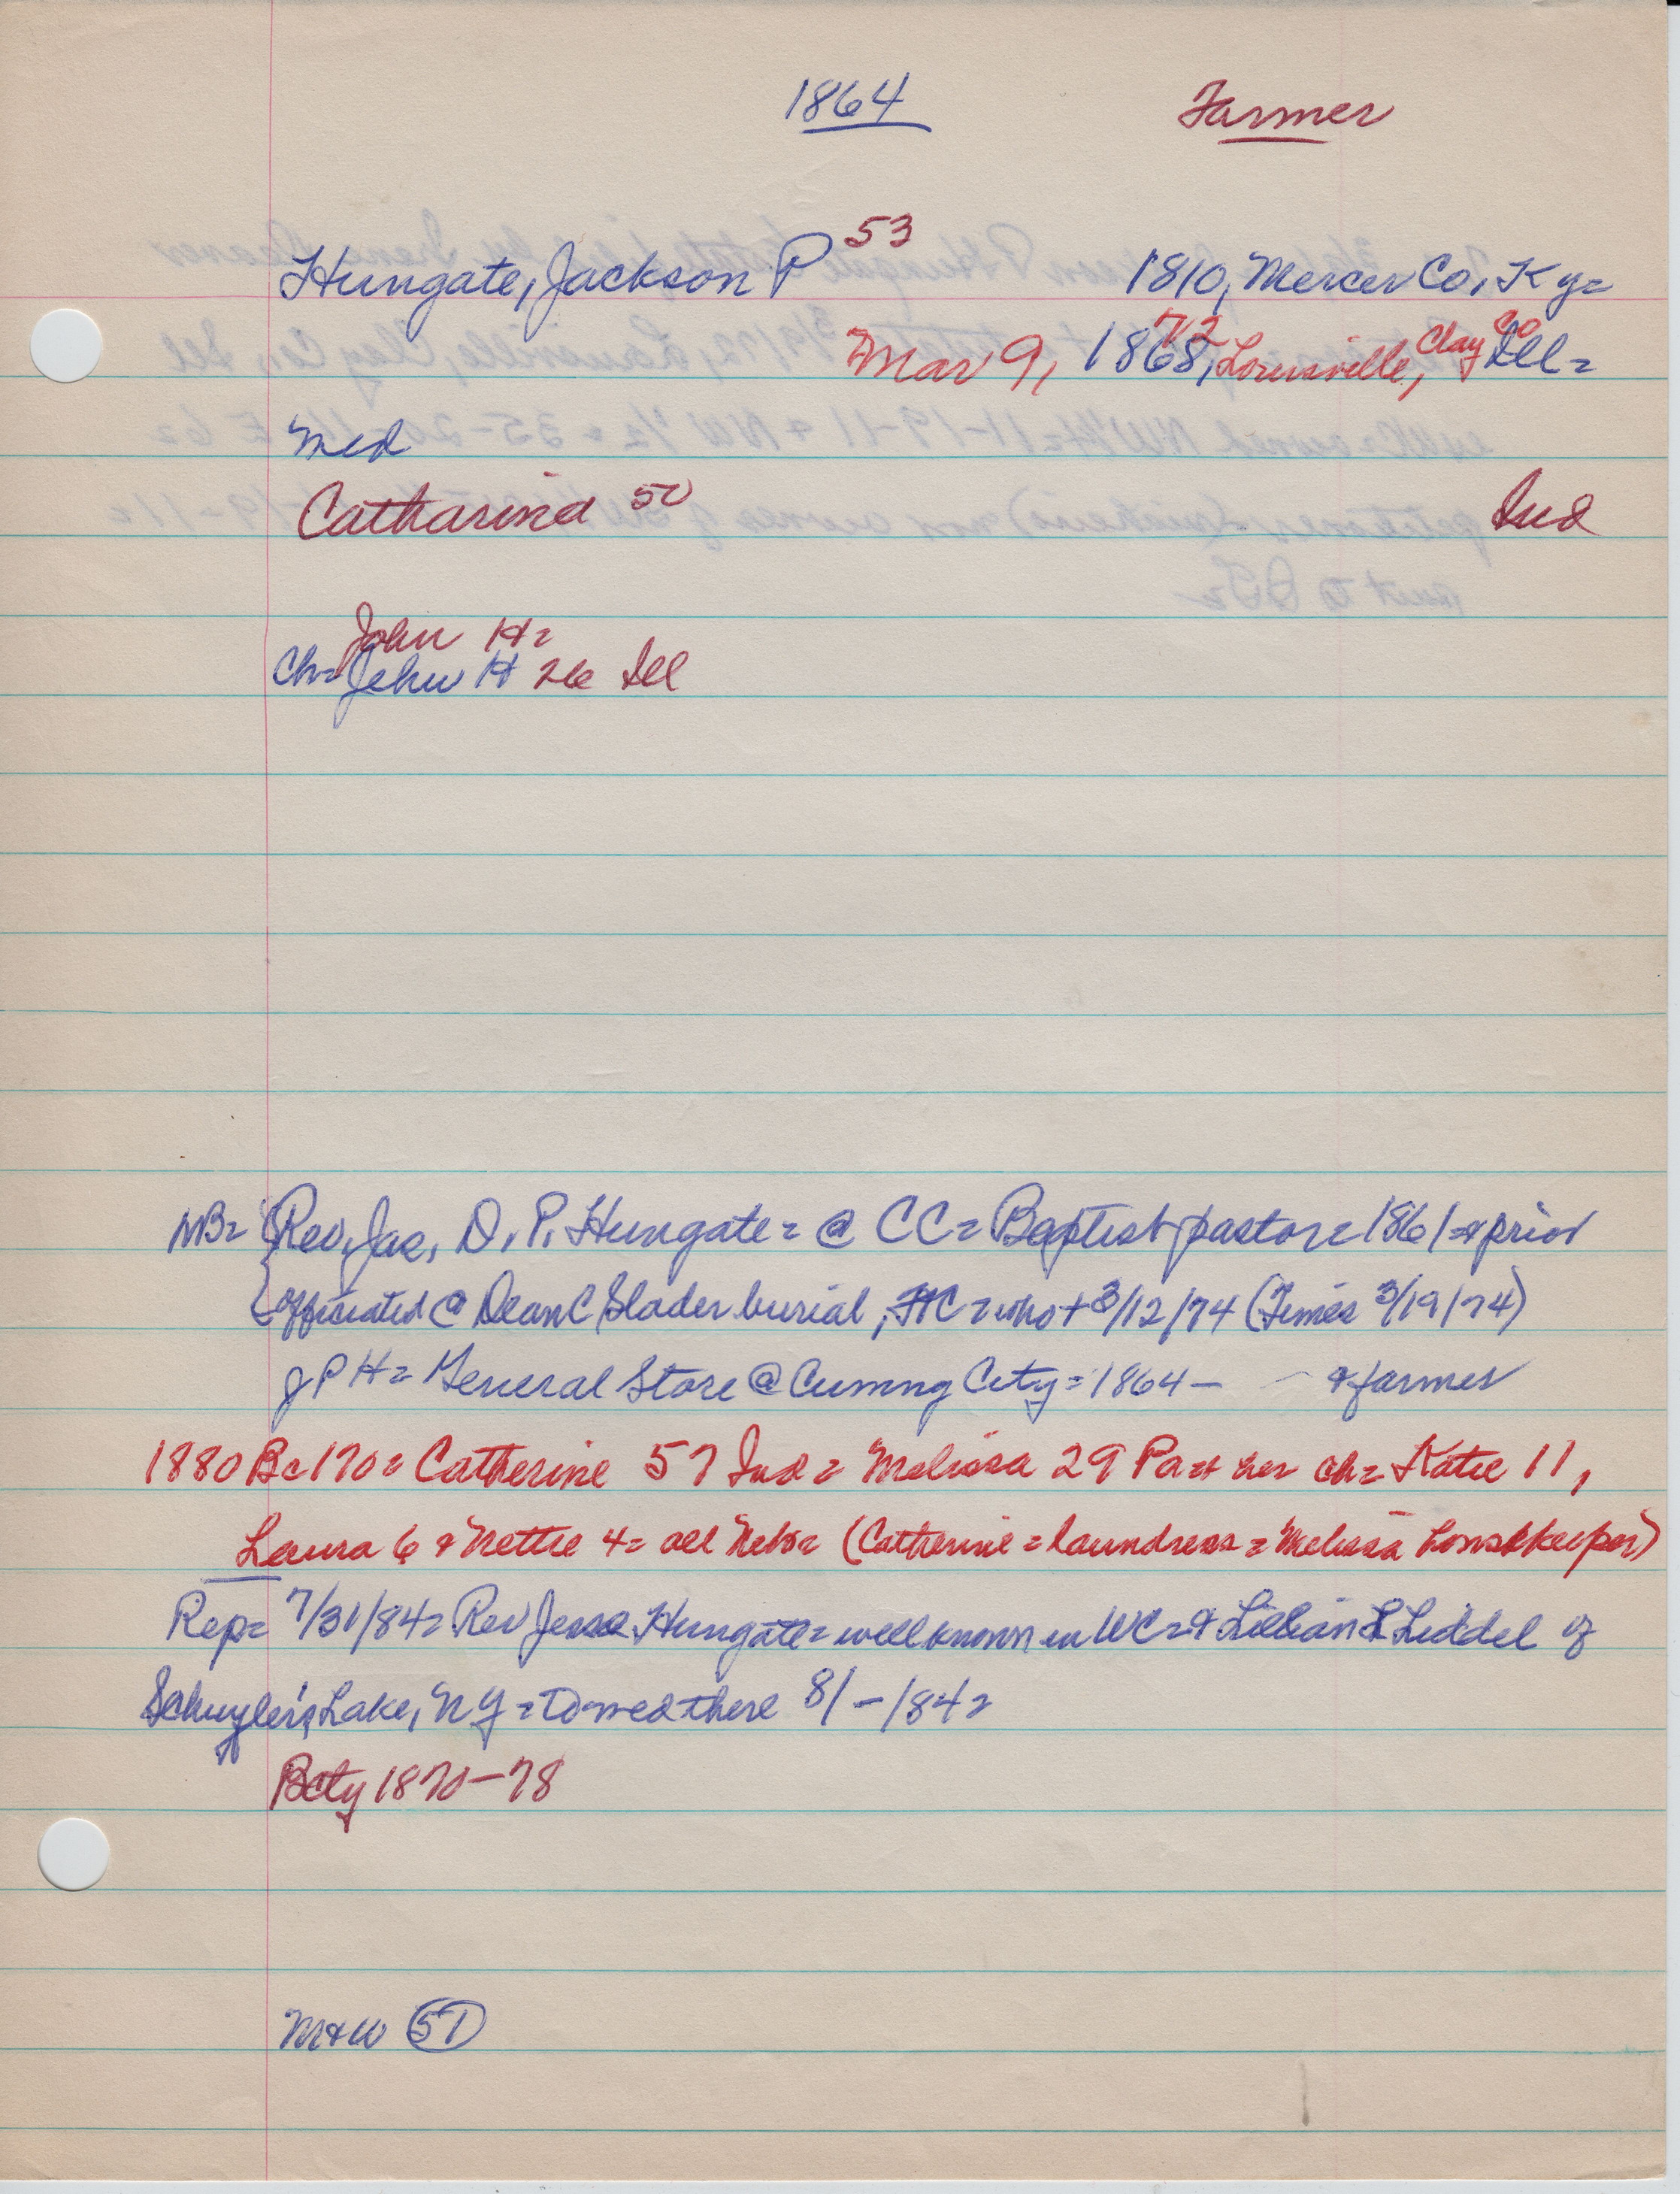 1864 Farmer
Hungate, Jackson P 53 1810, Mercer Co, Ky=
Mar 9, 1868, 72 Louisville, Clay Co Ill=
med
Catharina 50 Ind
John H=
Ch= John H 26 Ill
NB= Rev. Jac. D. P. Hungate= @ CC= Baptist pastor= 1861= & prior
officiated @ Dean C Slader burial, = who + 3/12/74 (Times 3/19/74)
J P H= General Store @ Cuming City= 1864 — & farmer
1880 B= 170= Catherine 57 Ind= Melissa 29 Pa= & her ch= Katie 11,
Laura 6 & Nettie 4= all Neb= (Catherine= laundress= Melissa housekeeper)
Rep= 7/31/84= Rev Jesse Hungate= well known in WC= & Lillian L Liddel of
Schuyler's Lake, NY= to med there 8/—/84=
Bcty 1870-78
M&W 51